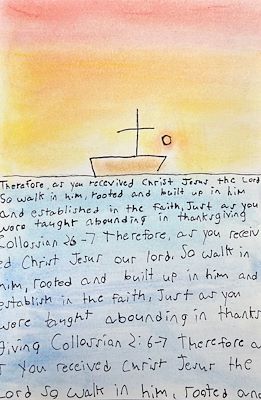 Therefore, as you receivied Christ Jesus the Lord
So walk in him, rooted and built up in him
and established in the faith, Just as you
were taught abounding in thanksgiving
Collossian 2:6-7 Therefore, as you receiv
ed Christ Jesus our lord. So walk in
him, rooted and built up in him and
establish in the faith, Just as you
were taught abounding in thanks
giving Collossian 2:6-7 Therefore a
s You received Christ Jesus the
Lord so walk in him, rooted and